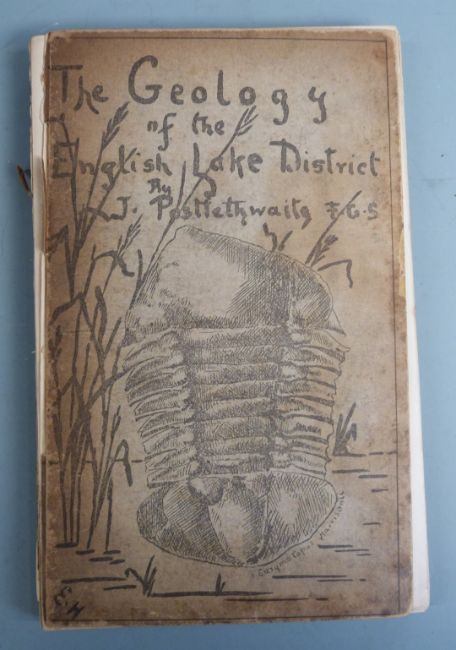 The Geology
of the
English Lake District
By
J. Postlethwaite F.G.S
E.H